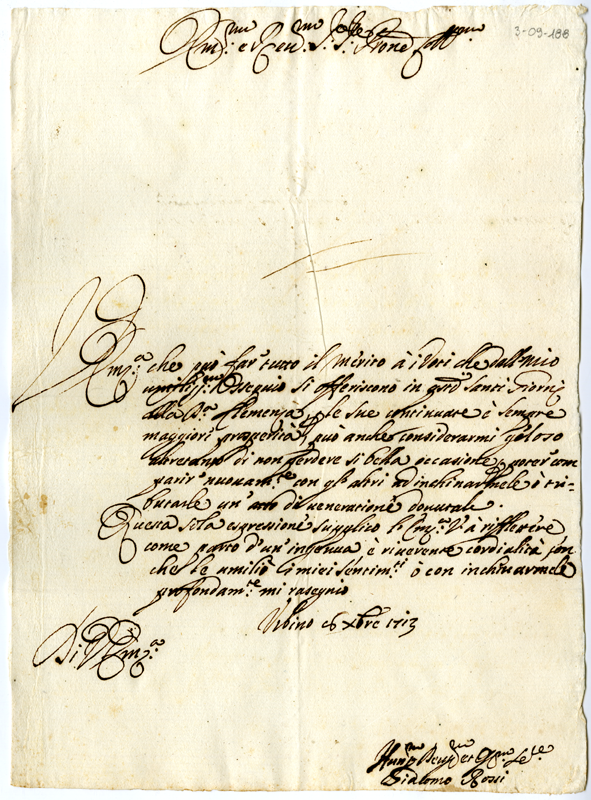 Em.mo e Rev.mo Sig.re Sig.re P̃rone Col.mo
3-09-188
V. Em.a che può far tutto il merito à i Voti che dall mio
umiliss.mo Ossequio si offeriscono in q̃sti Santi Giorni
alla B.a Clemenza, p le sue continuate è sempre
maggiori prosperità, può anche considerarmi geloso
altretanto di non perdere si bella occasione, p poter com
parir nuovam.te con gli altri ad inchinarmele è tri=
butarle un' atto di veneratione dovutale.
Questa si la espressione supplico l' Em.a V.a à riflettere
come parto d'un' ingenua è riverente cordialità, con
che le umiliò li miei sentim.ti è con inchinarmele
profondam.te mi rasegnio
Urbino Xbre 1713
Di V. Em.a
Hum.mo Dev.mo et Ser.re
Giacomo